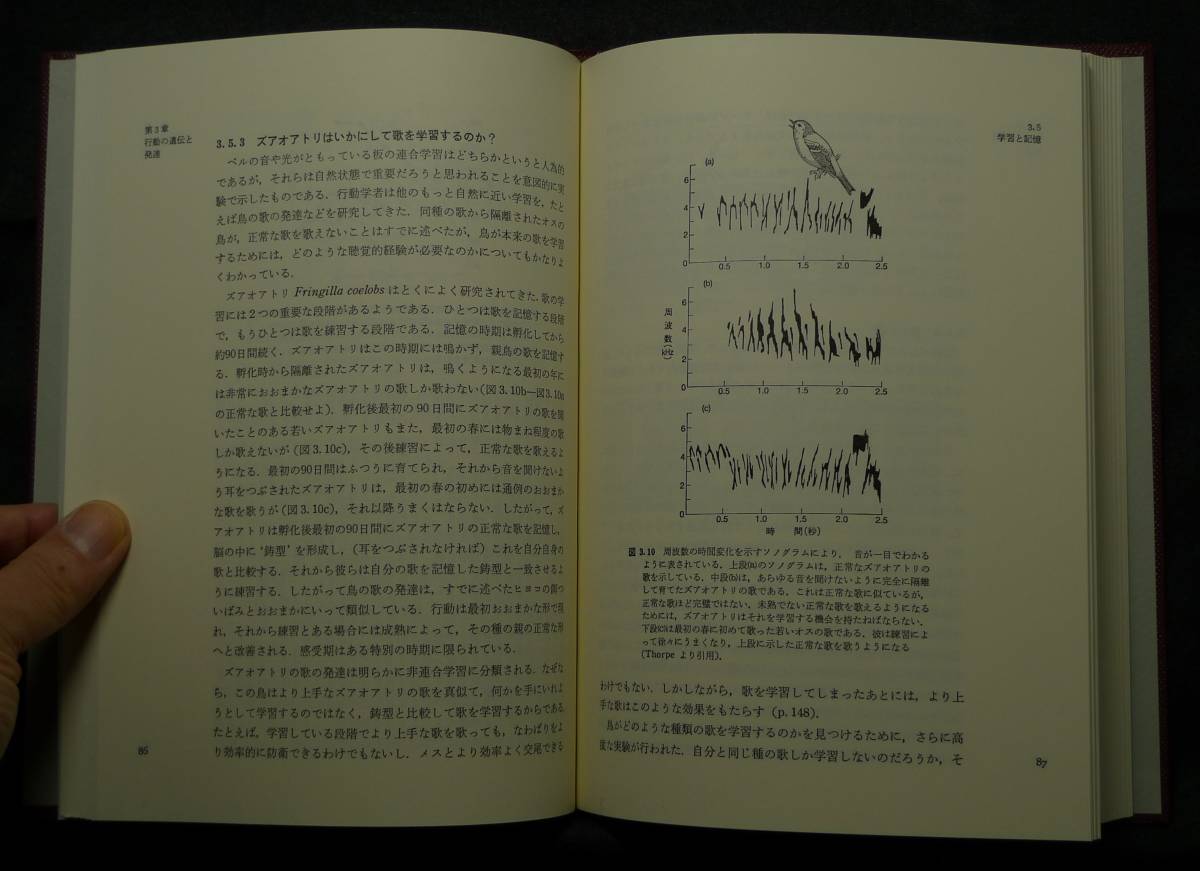 第3章
行動の遺伝と
発達
3.5.3 ズアオアトリはいかにして歌を学習するのか?
ベルの音や光がともっている板の連合学習はどちらかというと人為的
であるが,それらは自然状態で重要だろうと思われることを意図的に実
験で示したものである.行動学者は他のもっと自然に近い学習を,たと
えば鳥の歌の発達などを研究してきた.同種の歌から隔離されたオスの
鳥が,正常な歌を歌えないことはすでに述べたが,鳥が本来の歌を学習
するためには,どのような聴覚的経験が必要なのかについてもかなりよ
くわかっている.
ズアオアトリ Fringilla coelobs はとくによく研究されてきた.歌の学
習には2つの重要な段階があるようである.ひとつは歌を記憶する段階
で,もうひとつは歌を練習する段階である.記憶の時期は孵化してから
約90日間続く.ズアオアトリはこの時期には鳴かず,親鳥の歌を記憶す
る.孵化時から隔離されたズアオアトリは,鳴くようになる最初の年に
は非常におおまかなズアオアトリの歌しか歌わない(図3.10b—図3.10a
の正常な歌と比較せよ).孵化後最初の90日間にズアオアトリの歌を聞
いたことのある若いズアオアトリもまた,最初の春には物まね程度の歌
しか歌えないが(図3.10c),その後練習によって,正常な歌を歌えるよ
うになる.最初の90日間はふつうに育てられ,それから音を聞けないよ
う耳をつぶされたズアオアトリは,最初の春の初めには通例のおおまか
な歌を歌うが(図3.10c),それ以降うまくはならない.したがって,ズ
アオアトリは孵化後最初の90日間にズアオアトリの正常な歌を記憶し,
脳の中に‘鋳型’を形成し,(耳をつぶされなければ)これを自分自身の
歌と比較する.それから彼らは自分の歌を記憶した鋳型と一致させるよ
うに練習する.したがって鳥の歌の発達は,すでに述べたヒヨコの傷つ
いばみとおおまかにいって類似している.行動は最初おおまかな形で現
れ,それから練習とある場合には成熟によって,その種の親の正常な形
へと改善される.感受期はある特別の時期に限られている.
ズアオアトリの歌の発達は明らかに非連合学習に分類される.なぜな
ら,この鳥はより上手なズアオアトリの歌を真似て,何かを手にいれよ
うとして学習するのではなく,鋳型と比較して歌を学習するからである.
たとえば,学習している段階でより上手な歌を歌っても,なわばりをよ
り効率的に防衛できるわけでもないし,メスとより効率よく交尾できる
86
3.5
学習と記憶
(a)
6
4
2
0
0.5 1.0 1.5 2.0 2.5
(b)
周波数(kHz)
6
4
2
0
(c)
6
4
2
0
0.5 1.0 1.5 2.0 2.5
時 間(秒)
図 3.10 周波数の時間変化を示すソノグラムにより,音が一目でわかる
ように表されている.上段(a)のソノグラムは,正常なズアオアトリの
歌を示している.中段(b)は,あらゆる音を聞けないように完全に隔離
して育てたズアオアトリの歌である.これは正常な歌に似ているが,
正常な歌ほど完璧ではない.未熟でない正常な歌を歌えるようになる
ためには,ズアオアトリはそれを学習する機会を持たねばならない.
下段(c)は最初の春に初めて歌った若いオスの歌である.彼は練習によ
って徐々にうまくなり,上段に示した正常な歌を歌うようになる
(Thorpe より引用).
わけでもない.しかしながら,歌を学習してしまったあとには,より上
手な歌はこのような効果をもたらす(p.148).
鳥がどのような種類の歌を学習するのかを見つけるために,さらに高
度な実験が行われた.自分と同じ種の歌しか学習しないのだろうか,そ
87